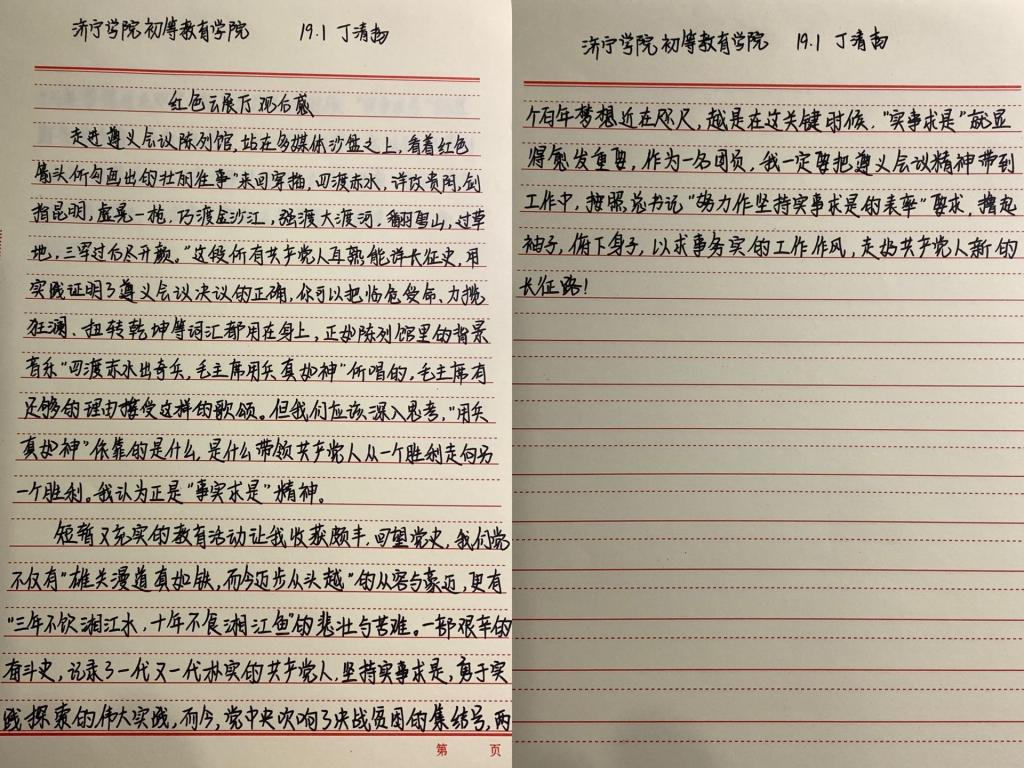 济宁学院初等教育学院 19.1 丁清
红色云展厅观后感
走进遵义会议陈列馆,站在多媒体沙盘之上,看着红色
箭头所勾画出的壮丽往事"来回穿插,四渡赤水,详攻贵阳,剑
指昆明,虚晃一枪,巧渡金沙江,强渡大渡河,翻雪山,过草
地,三军过后尽开颜。"这段所有共产党人耳熟能详长征史,用
实践证明了遵义会议决议的正确,你可以把临危受命、力揽
狂澜、扭转乾坤等词汇都用在身上,正如陈列馆里的背景
音乐"四渡赤水出奇兵,毛主席用兵真如神"所唱的,毛主席有
足够的理由接受这样的歌颂。但我们应该深入思考,"用兵
真如神"依靠的是什么,是什么带领共产党人从一个胜利走向另
一个胜利。我认为正是"事实求是"精神。
短暂又充实的教育活动让我收获颇丰,回望党史,我们党
不仅有"雄关漫道真如铁,而今迈步从头越"的从容与豪迈,更有
"三年不饮湘江水,十年不食湘江鱼"的悲壮与苦难。一部艰辛的
奋斗史,记录了一代又一代朴实的共产党人,坚持实事求是,勇于实
践探索的伟大实践,而今,党中央吹响了决战贫困的集结号,两
第 页
济宁学院初等教育学院 19.1 丁清
个百年梦想近在咫尺,越是在这关键时候,"实事求是"就显
得愈发重要,作为一名团员,我一定要把遵义会议精神带到
工作中,按照总书记"努力作坚持实事求是的表率"要求,撸起
袖子,俯下身子,以求事务实的工作作风,走好共产党人新的
长征路!